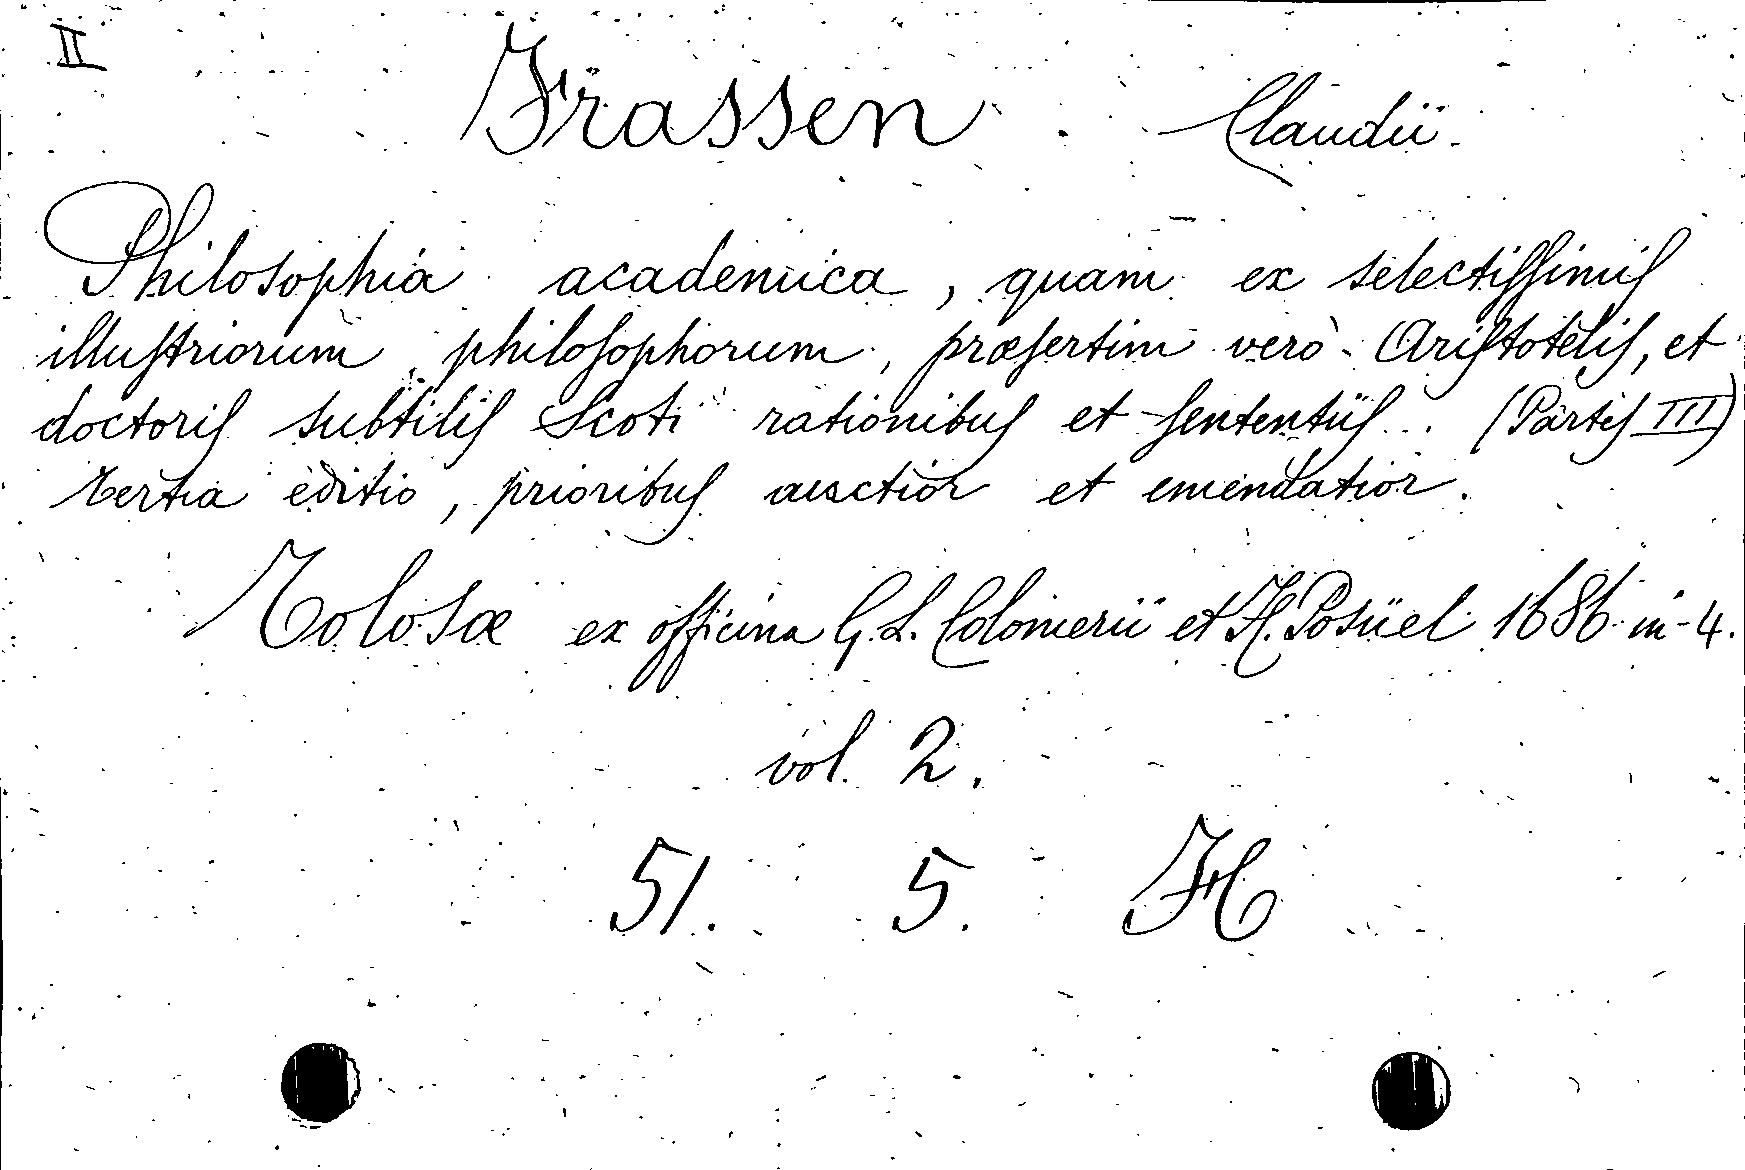 II
Frassen Claudii.
Philosophia academica, quam ex selectissimis
illustriorum philosophorum, præsertim verò Aristotelis, et
doctoris subtilis Scoti rationibus et sententiis... (Partis III)
tertia editio, prioribus auctior et emendatior.
Tolosæ ex officina G. L. Colomerii et H. Posüel 1686 in-4.
vol. 2.
51. 5. H